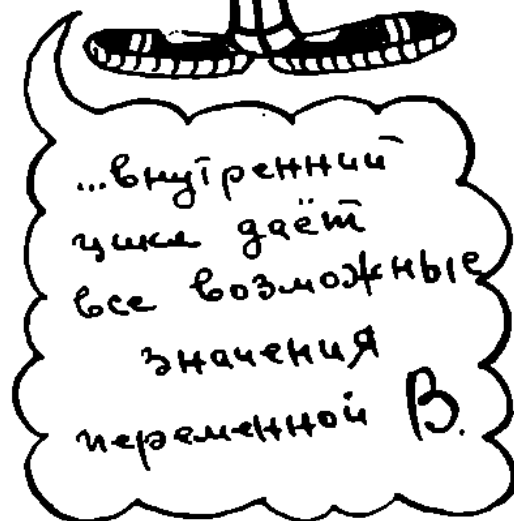 ...внутренний
цикл даёт
все возможные
значения
переменной В.